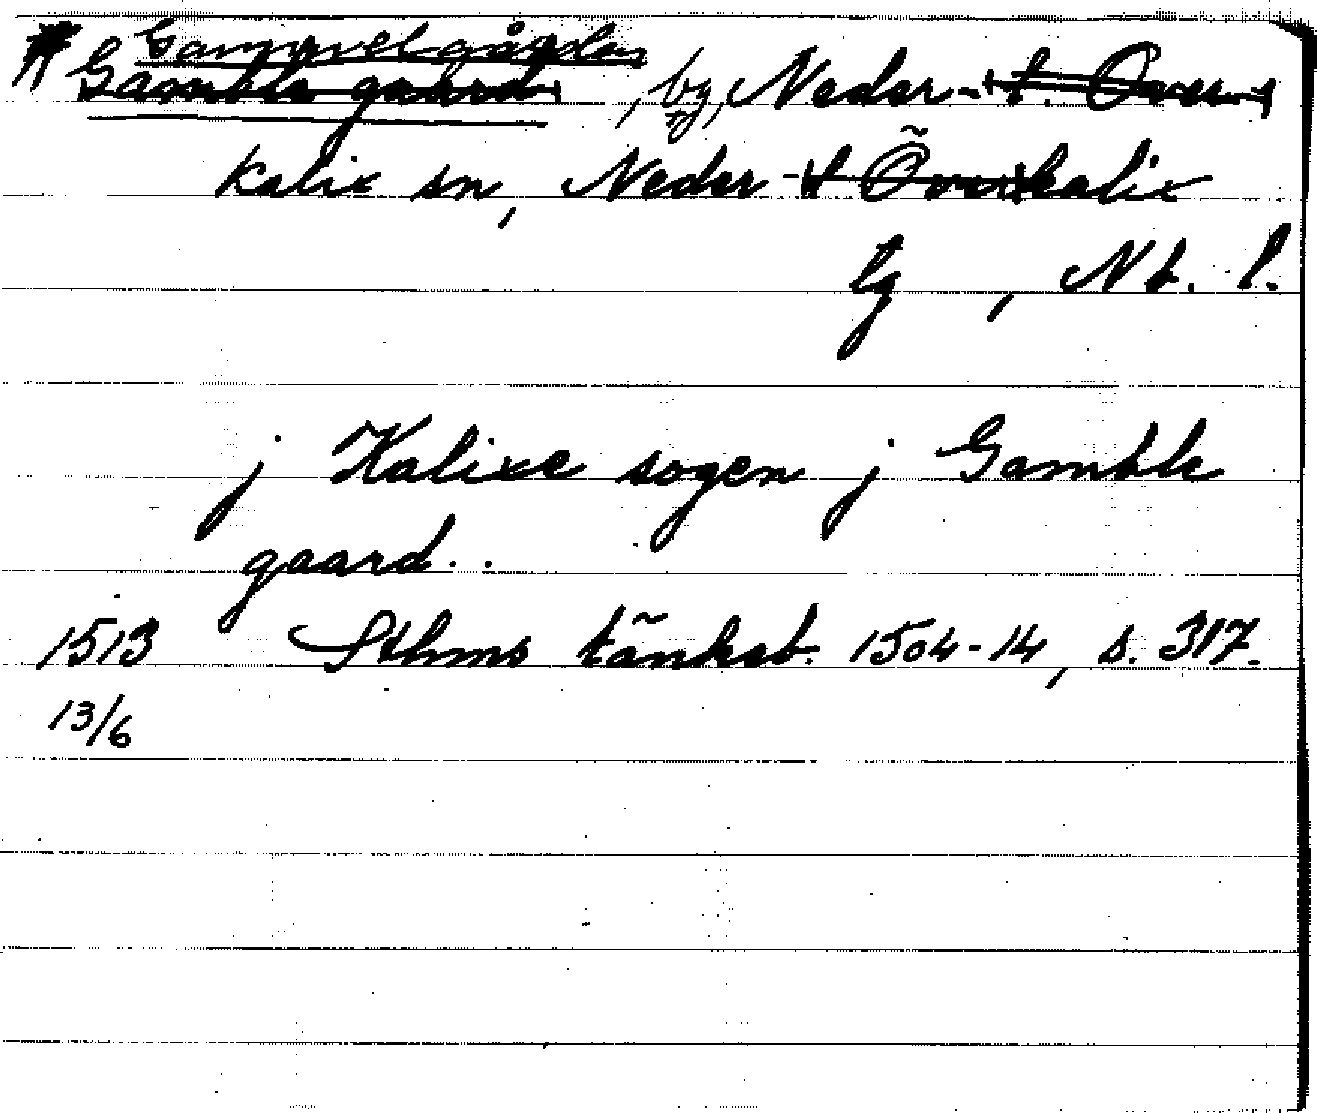 Gammelgården
Gamble gaard, by, Neder- t. Över-
kalix sn, Neder- t Överkalix
tg, Nb. l.
j Kalixe sogen j Gamble
gaard..
1513 Sthms tänkeb. 1504-14, s. 317.
13/6